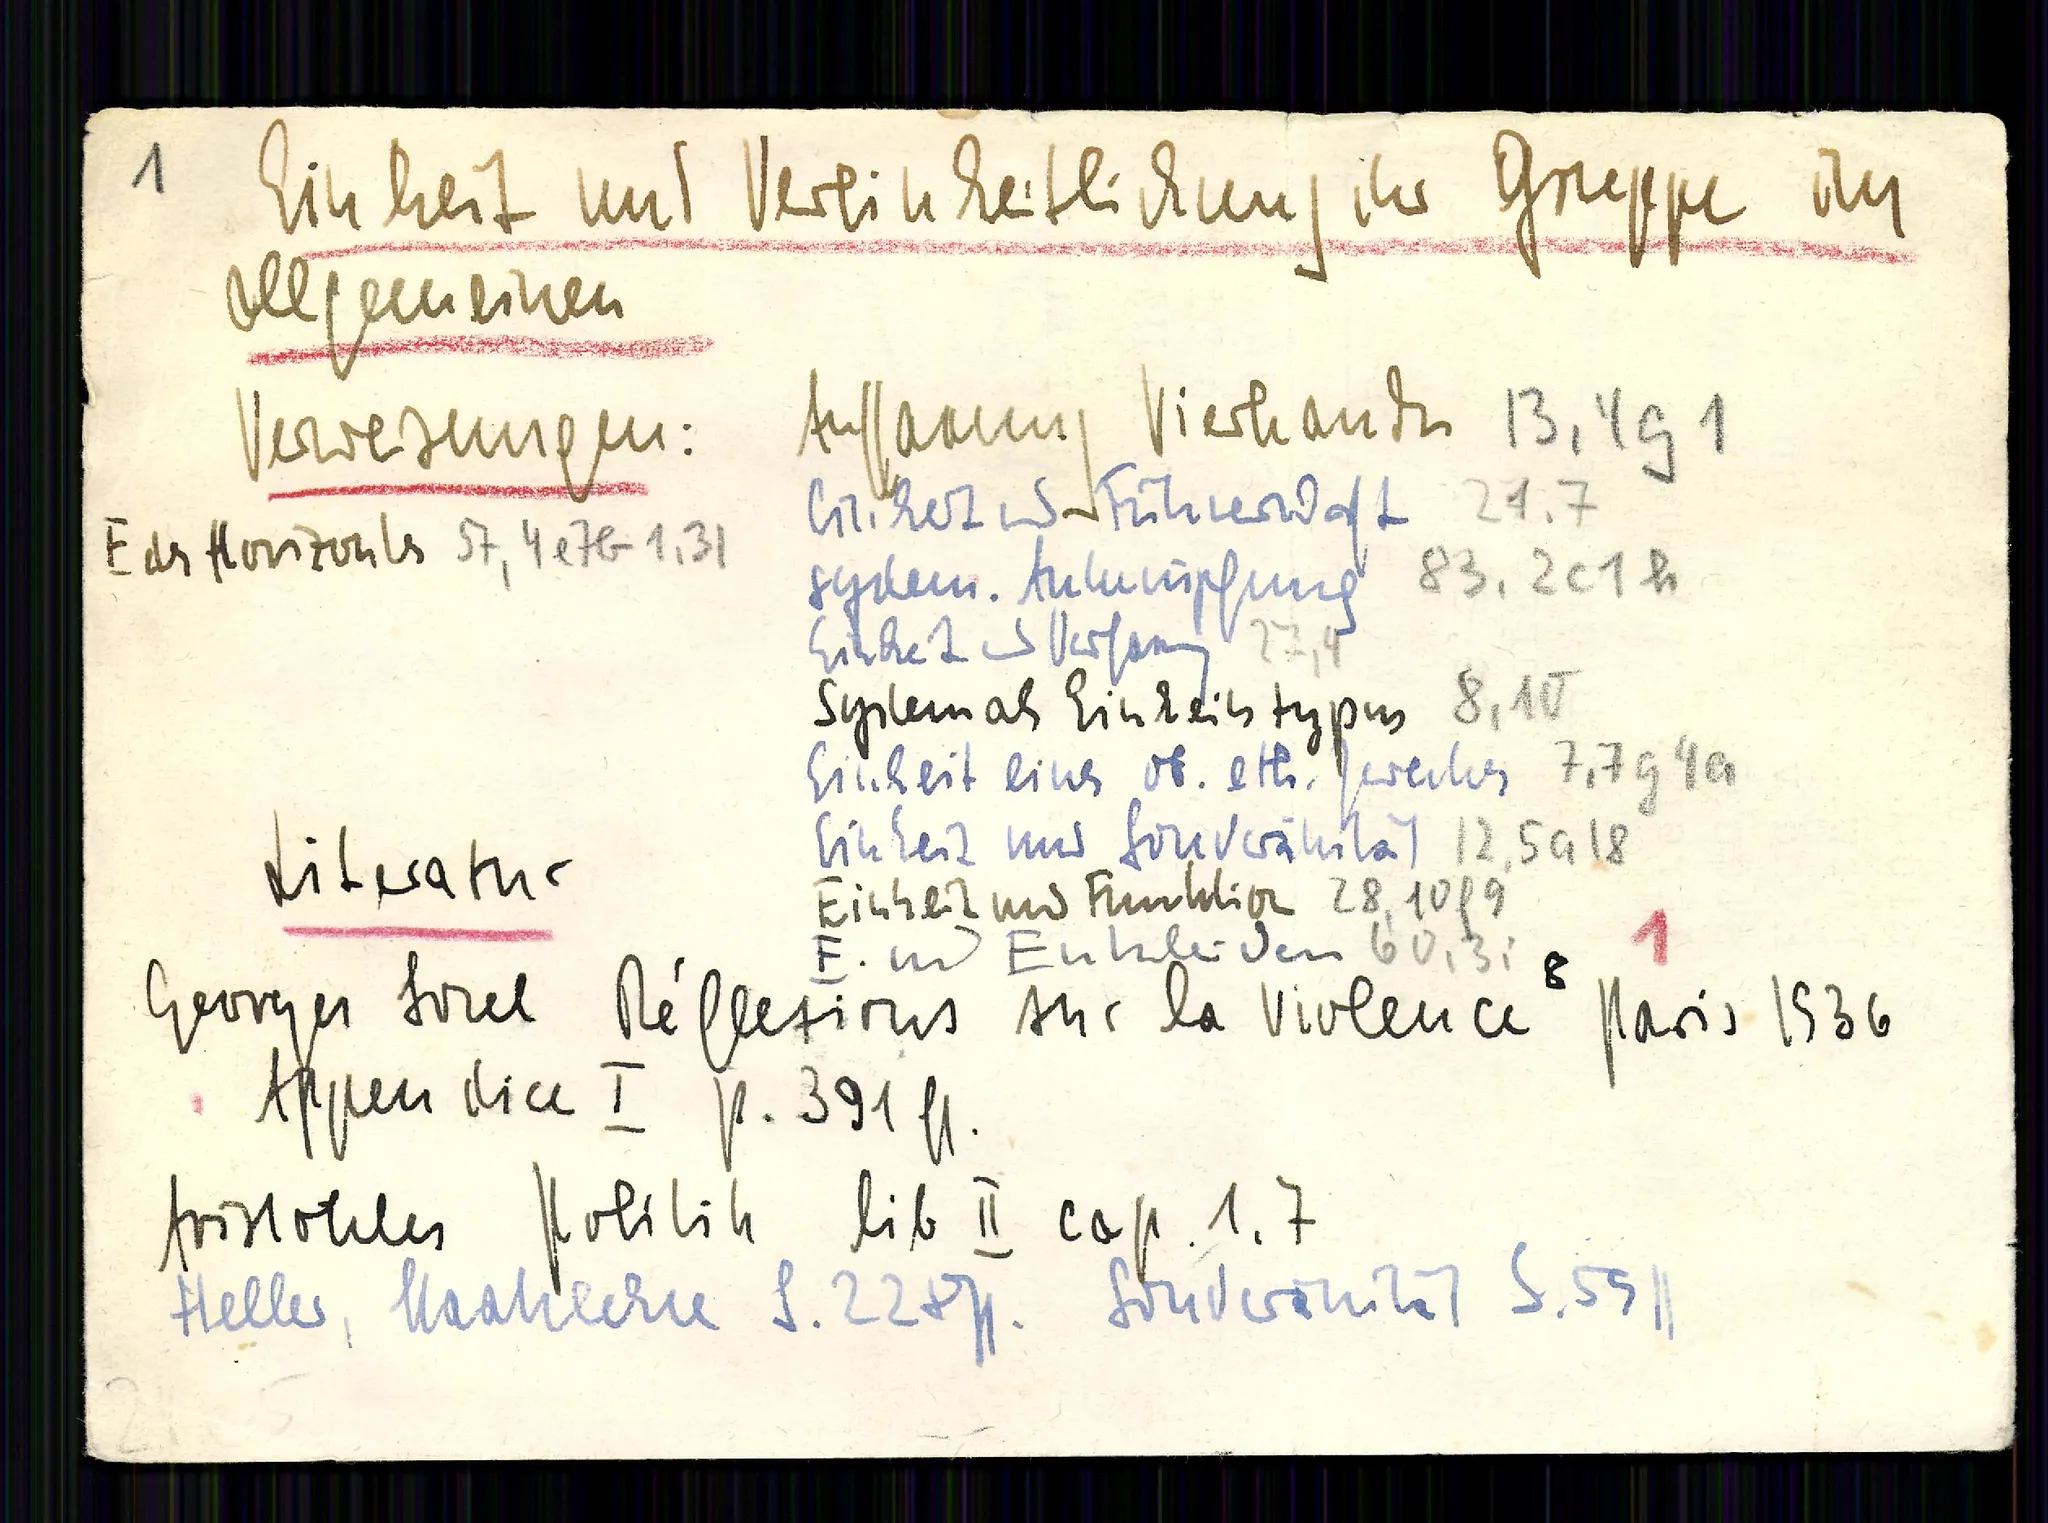 1 Einheit und Vereinheitlichung der Gruppe im
allgemeinen
Verweisungen: Auffassung Vierkandts 13,4g1
Einheit und Führerschaft 21.7
E des Horizontes 57,4e7b-1,31
system. Anknüpfung 83,2c1h
Einheit und Verfassung 27,4
System als Einheitstypus 8,10
Einheit eines ob. eth. Zweckes 7,7g4a
Einheit und Souveränität 12,5a18
Literatur
Einheit und Funktion 28,10f9
E. und Entscheiden 60,3i 1
Georges Sorel Réflexions sur la Violence 8 Paris 1936
Appendice I p. 391 ff.
Aristoteles Politik lib II cap. 1.7
Heller, Staatslehre S. 228ff. Souveränität S. 59 ff